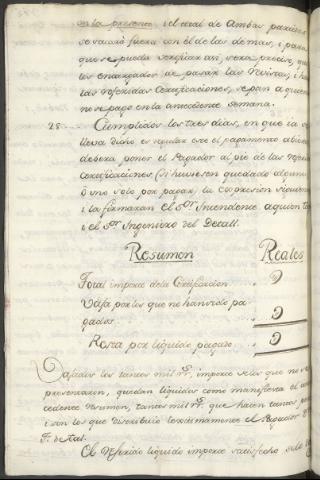 en la presente, i el total de Ambas partidas
se sacará fuera con el de las demas, i para
que se pueda verificar asi, será preciso, que
los encargados de pasar las Revistas, i
las referidas Certificaciones, sepan a quien
no se pagó en la antecedente semana.
28. Cumplidos los tres dias, en que ia
lleva dicho es regular este el pagamento
deberá poner el Pagador al pie de las
certificaciones (si huviesen quedado algun
ó uno solo por pagar, la expresion siguien
i la firmarán el S.or Intendente a quien
i el S.or Ingeniero del Detall.
Resumen Reales
Total importe de la Certificacion
Vaja por los que no han sido pa
gados
Resta por liquido pagado
Vajados los tantos mil rr.s importe de los que no se
presentaron, quedan liquidos como manifiesta el
cedente resumen, tantos mil rr.s que hacen tantos
i son los que distribuió lexitimamente el Pagador
F. de tal.
El referido liquido importe satisfecho